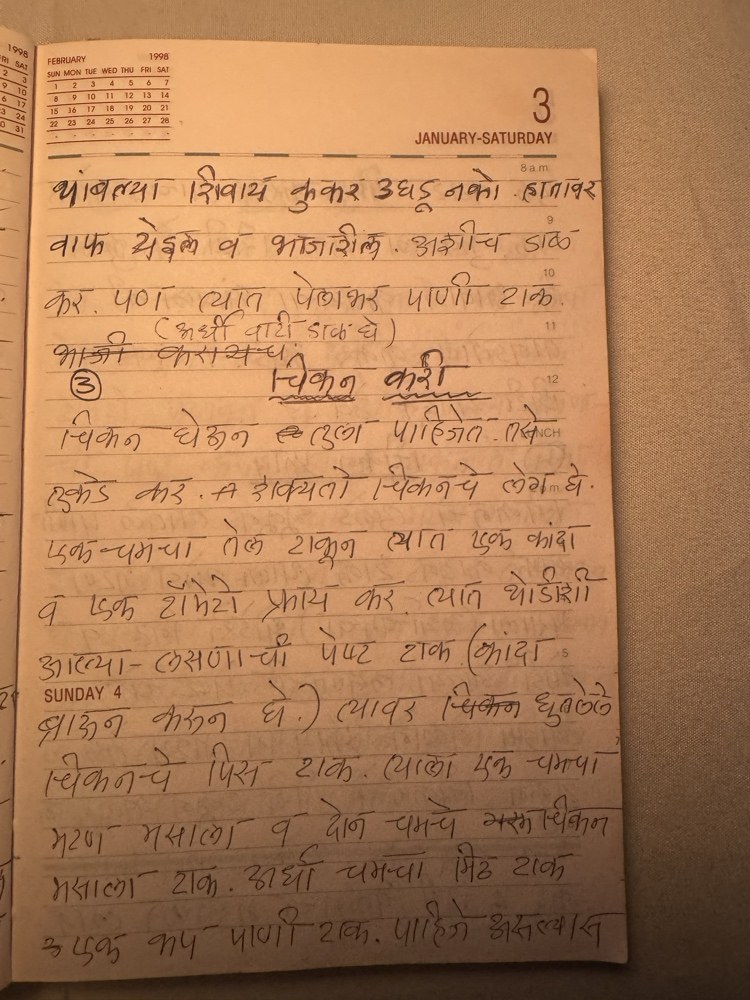 1998
FRI SAT
2 3
9 10
16 17
23 24
30 31
FEBRUARY 1998
SUN MON TUE WED THU FRI SAT
1 2 3 4 5 6 7
8 9 10 11 12 13 14
15 16 17 18 19 20 21
22 23 24 25 26 27 28
3
JANUARY-SATURDAY
8 a.m.
थांबल्या शिवाय कुकर उघडू नको. हातावर
9
वाफ येइल व भाजशील. अशीच डाळ
10
कर. पण त्यात पेलाभर पाणी टाक.
(अर्धी वाटी डाळ घे)
11
भाजी करायच.
③ चिकन करी
12
चिकन घेऊन तुला पाहिजेत तसे
LUNCH
तुकडे कर. शक्यतो चिकनचे लेग घे.
एक चमचा तेल टाकून त्यात एक कांदा
व एक टॉमेटो फ्राय कर. त्यात थोडीशी
आल्या-लसणाची पेस्ट टाक (कांदा
5
SUNDAY 4
ब्राऊन करून घे.) त्यावर चिकन धुतलेले
चिकनचे पिस टाक. त्याला एक चमचा
मटण मसाला व दोन चमचे गरम चिकन
मसाला टाक. अर्धा चमचा मिठ टाक
एक कप पाणी टाक. पाहिजे असल्यास